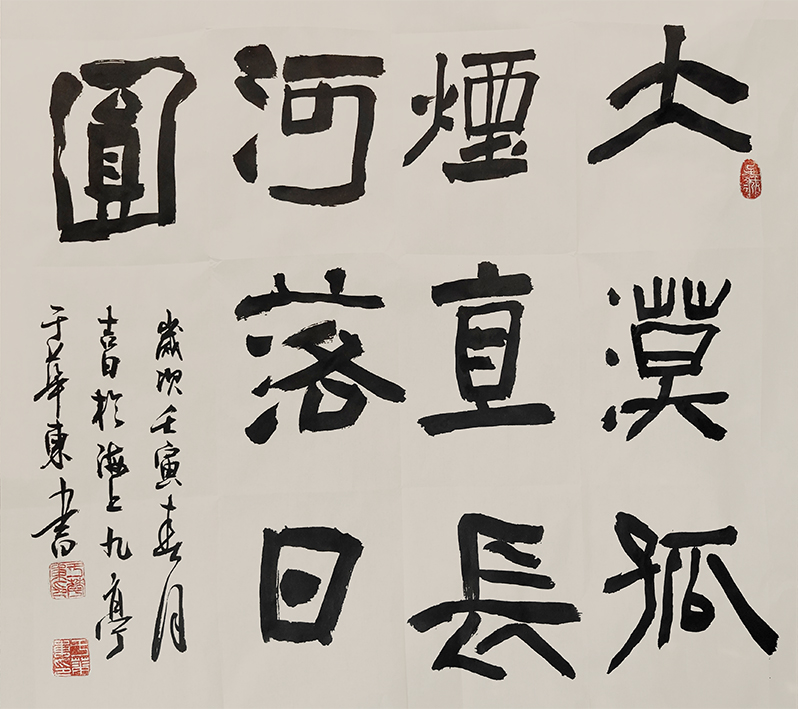 大漠孤
煙直長
河落日
圓
歲次壬寅春月
吉日於海上九亭
于華東書